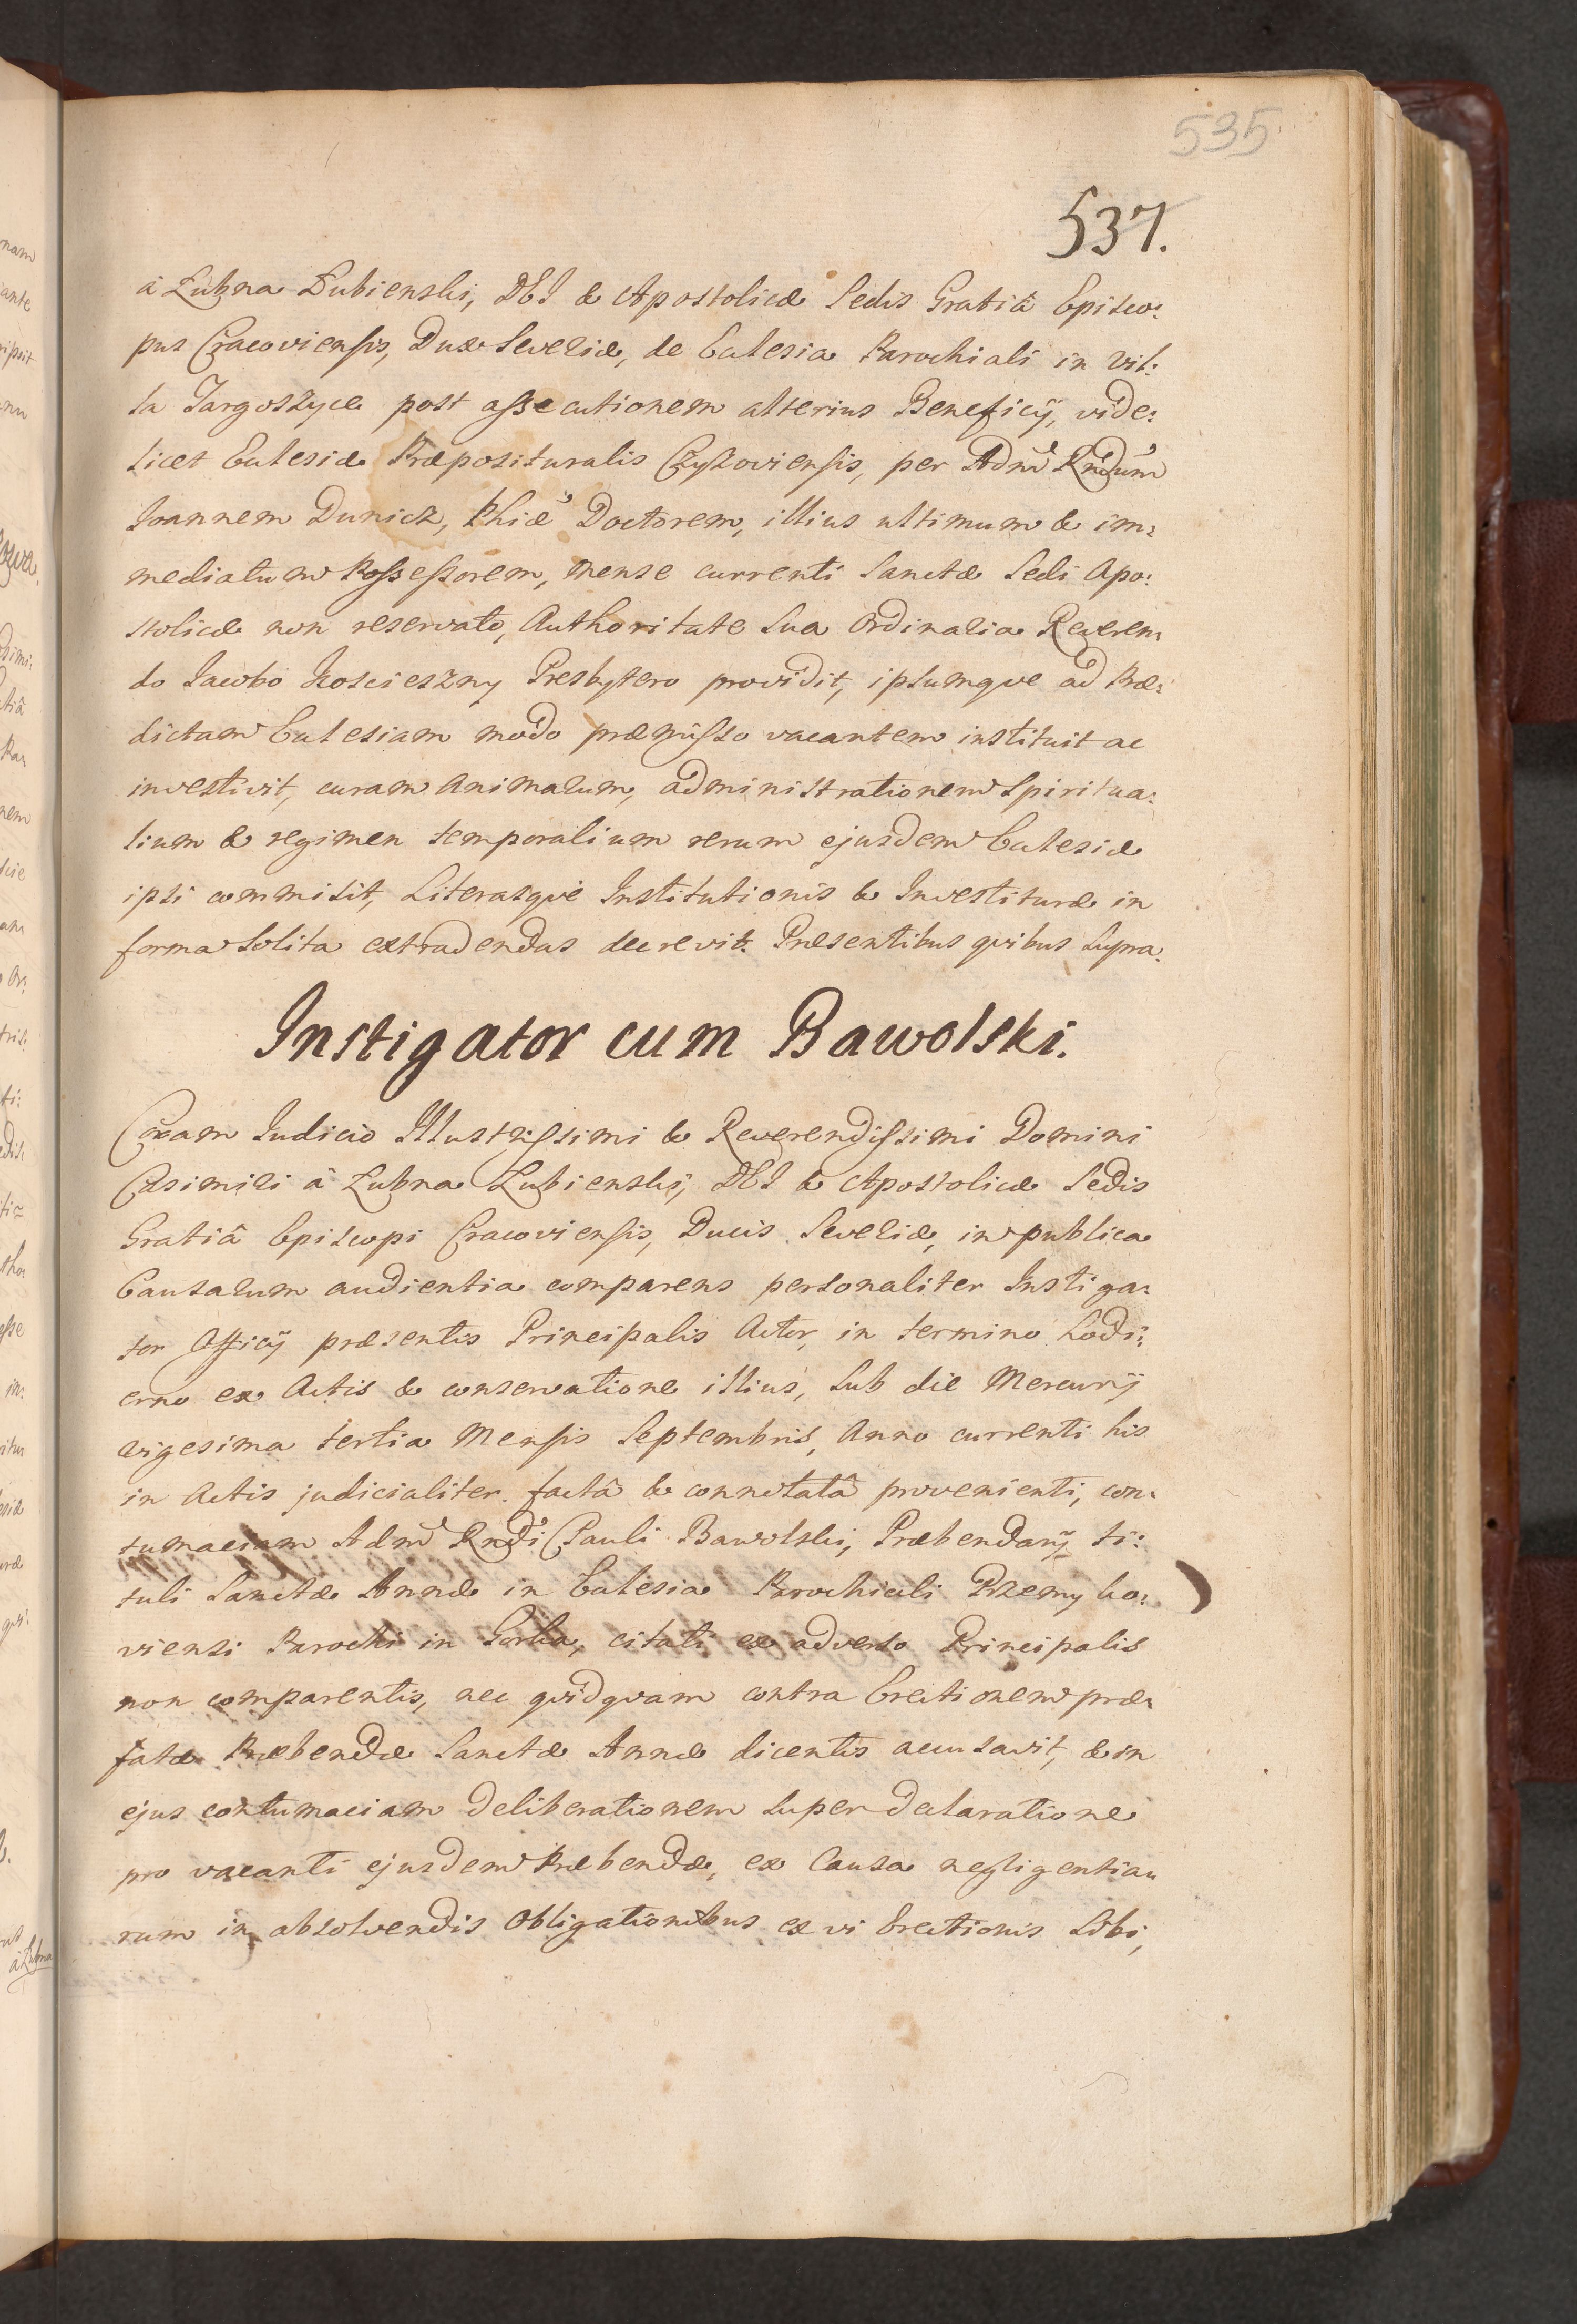 535
537.
à Łubna Łubienski, DEI & Apostolicæ Sedis Gratiâ Episco:
pus Cracoviensis, Dux Severiæ, de Ecclesia Parochiali in Vil:
la Targoszyce post assecutionem alterius Beneficij, vide:
licet Ecclesiæ Præposituralis Czyżoviensis, per Adm̃ Rñdum
Joannem Dunicz, Phiæ Doctorem, illius ultimum & im:
mediatum Possessorem, Mense currenti Sanctæ Sedi Apo:
stolicæ non reservato, Authoritate Sua Ordinaria Reveren:
do Jacobo Koscieszny Presbytero providit, ipsumque ad Præ:
dictam Ecclesiam modo præmisso vacantem instituit ac
investivit, curam Animarum, administrationem Spiritua:
lium & regimen temporalium rerum ejusdem Ecclesiæ
ipsi commisit, Literasque Institutionis & Investituræ in
forma solita extradendas decrevit. Præsentibus quibus Supra.
Instigator cum Bawolski.
Coram Judicio Illustrissimi & Reverendissimi Domini
Casimiri â Łubna Łubienski, DEI & Apostolicæ Sedis
Gratiâ Episcopi Cracoviensis, Ducis Severiæ, in publica
Causarum audientia comparens personaliter Instiga:
tor Officij præsentis Principalis Actor, in termino hodi:
erno ex Actis & conservatione illius, sub die Mercurij
vigesima tertia Mensis Septembris, Anno currenti his
in Actis judicialiter factâ & connotatâ provenienti, con:
tumaciam Adm̃ Rñdi Pauli Bawolski, Præbendarij ti:
tuli Sanctæ Annæ in Ecclesia Parochiali Przemyko:
viensi Parochi in Gorka, citati ex adverso Principalis
non comparentis, nec quidquam contra Erectionem præ:
fatæ Præbendæ Sanctæ Annæ dicentis accusavit, & in
ejus contumaciam deliberationem super declaratione
pro vacanti ejusdem Præbendæ, ex Causa negligentia:
rum in absolvendis Obligationibus ex vi Erectionis Sibi,